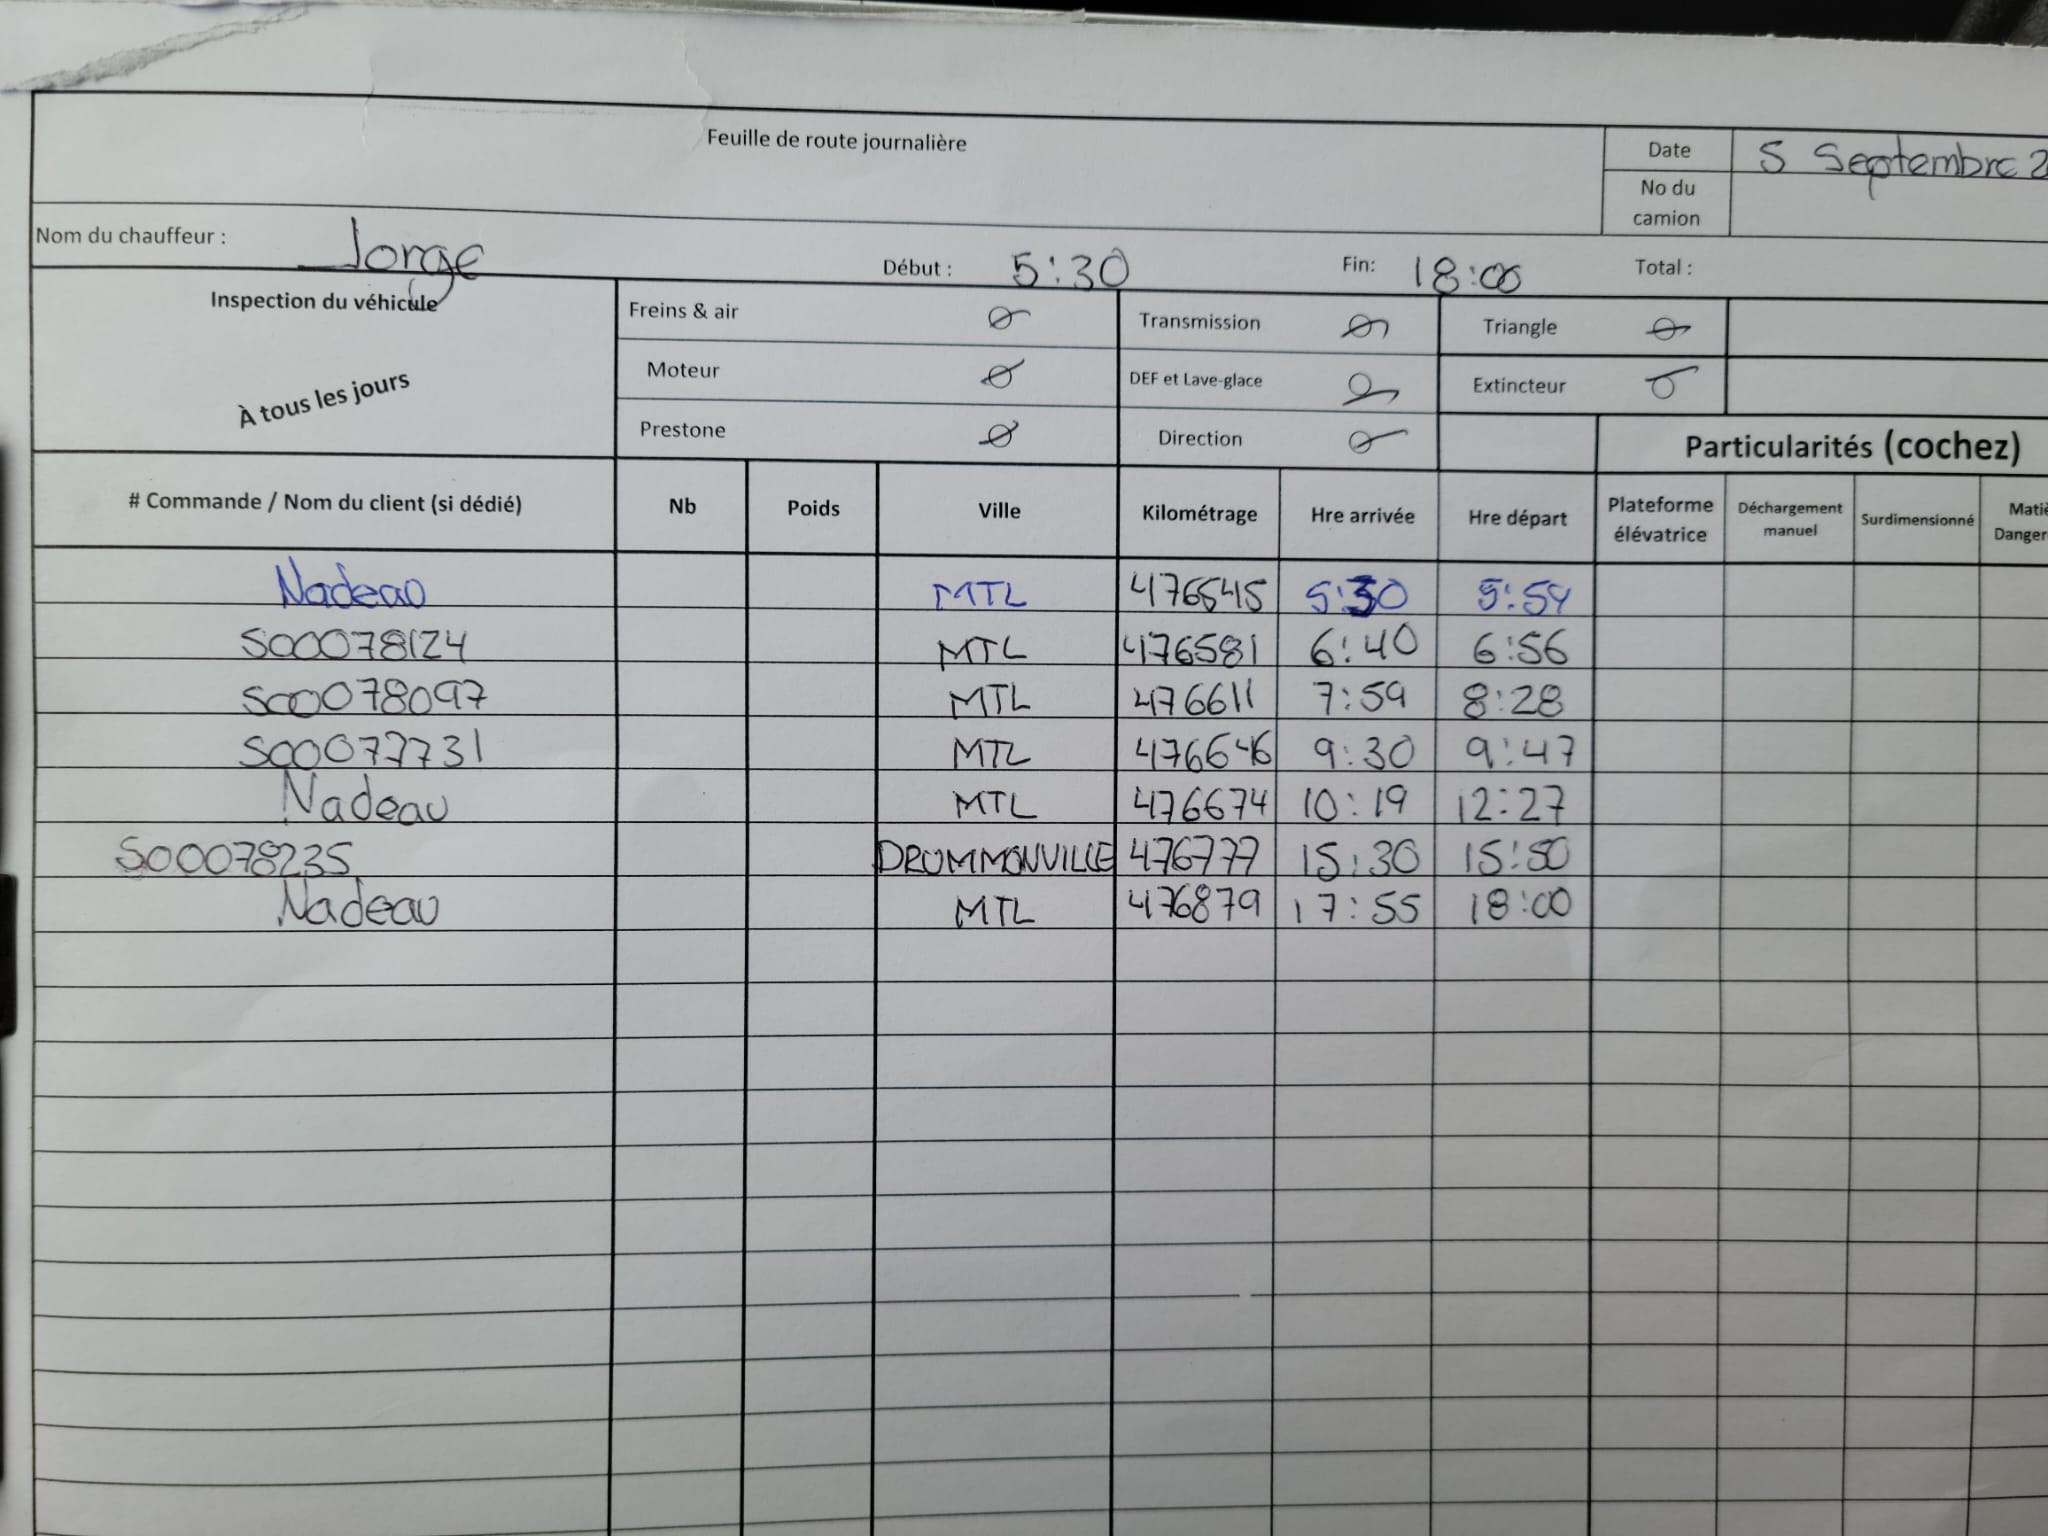 Feuille de route journalière
Date 5 Septembre 2
No du camion
Nom du chauffeur : Jorge Début : 5:30 Fin: 18:00 Total :
Inspection du véhicule
À tous les jours
Freins & air Transmission Triangle
Moteur DEF et Lave-glace Extincteur
Prestone Direction
Particularités (cochez)
# Commande / Nom du client (si dédié) Nb Poids Ville Kilométrage Hre arrivée Hre départ Plateforme élévatrice Déchargement manuel Surdimensionné
Nadeau MTL 476545 5:30 5:54
S00078124 MTL 476581 6:40 6:56
S00078097 MTL 476611 7:59 8:28
S00077731 MTL 476646 9:30 9:47
Nadeau MTL 476674 10:19 12:27
S00078235 DRUMMONVILLE 476777 15:30 15:50
Nadeau MTL 476879 17:55 18:00